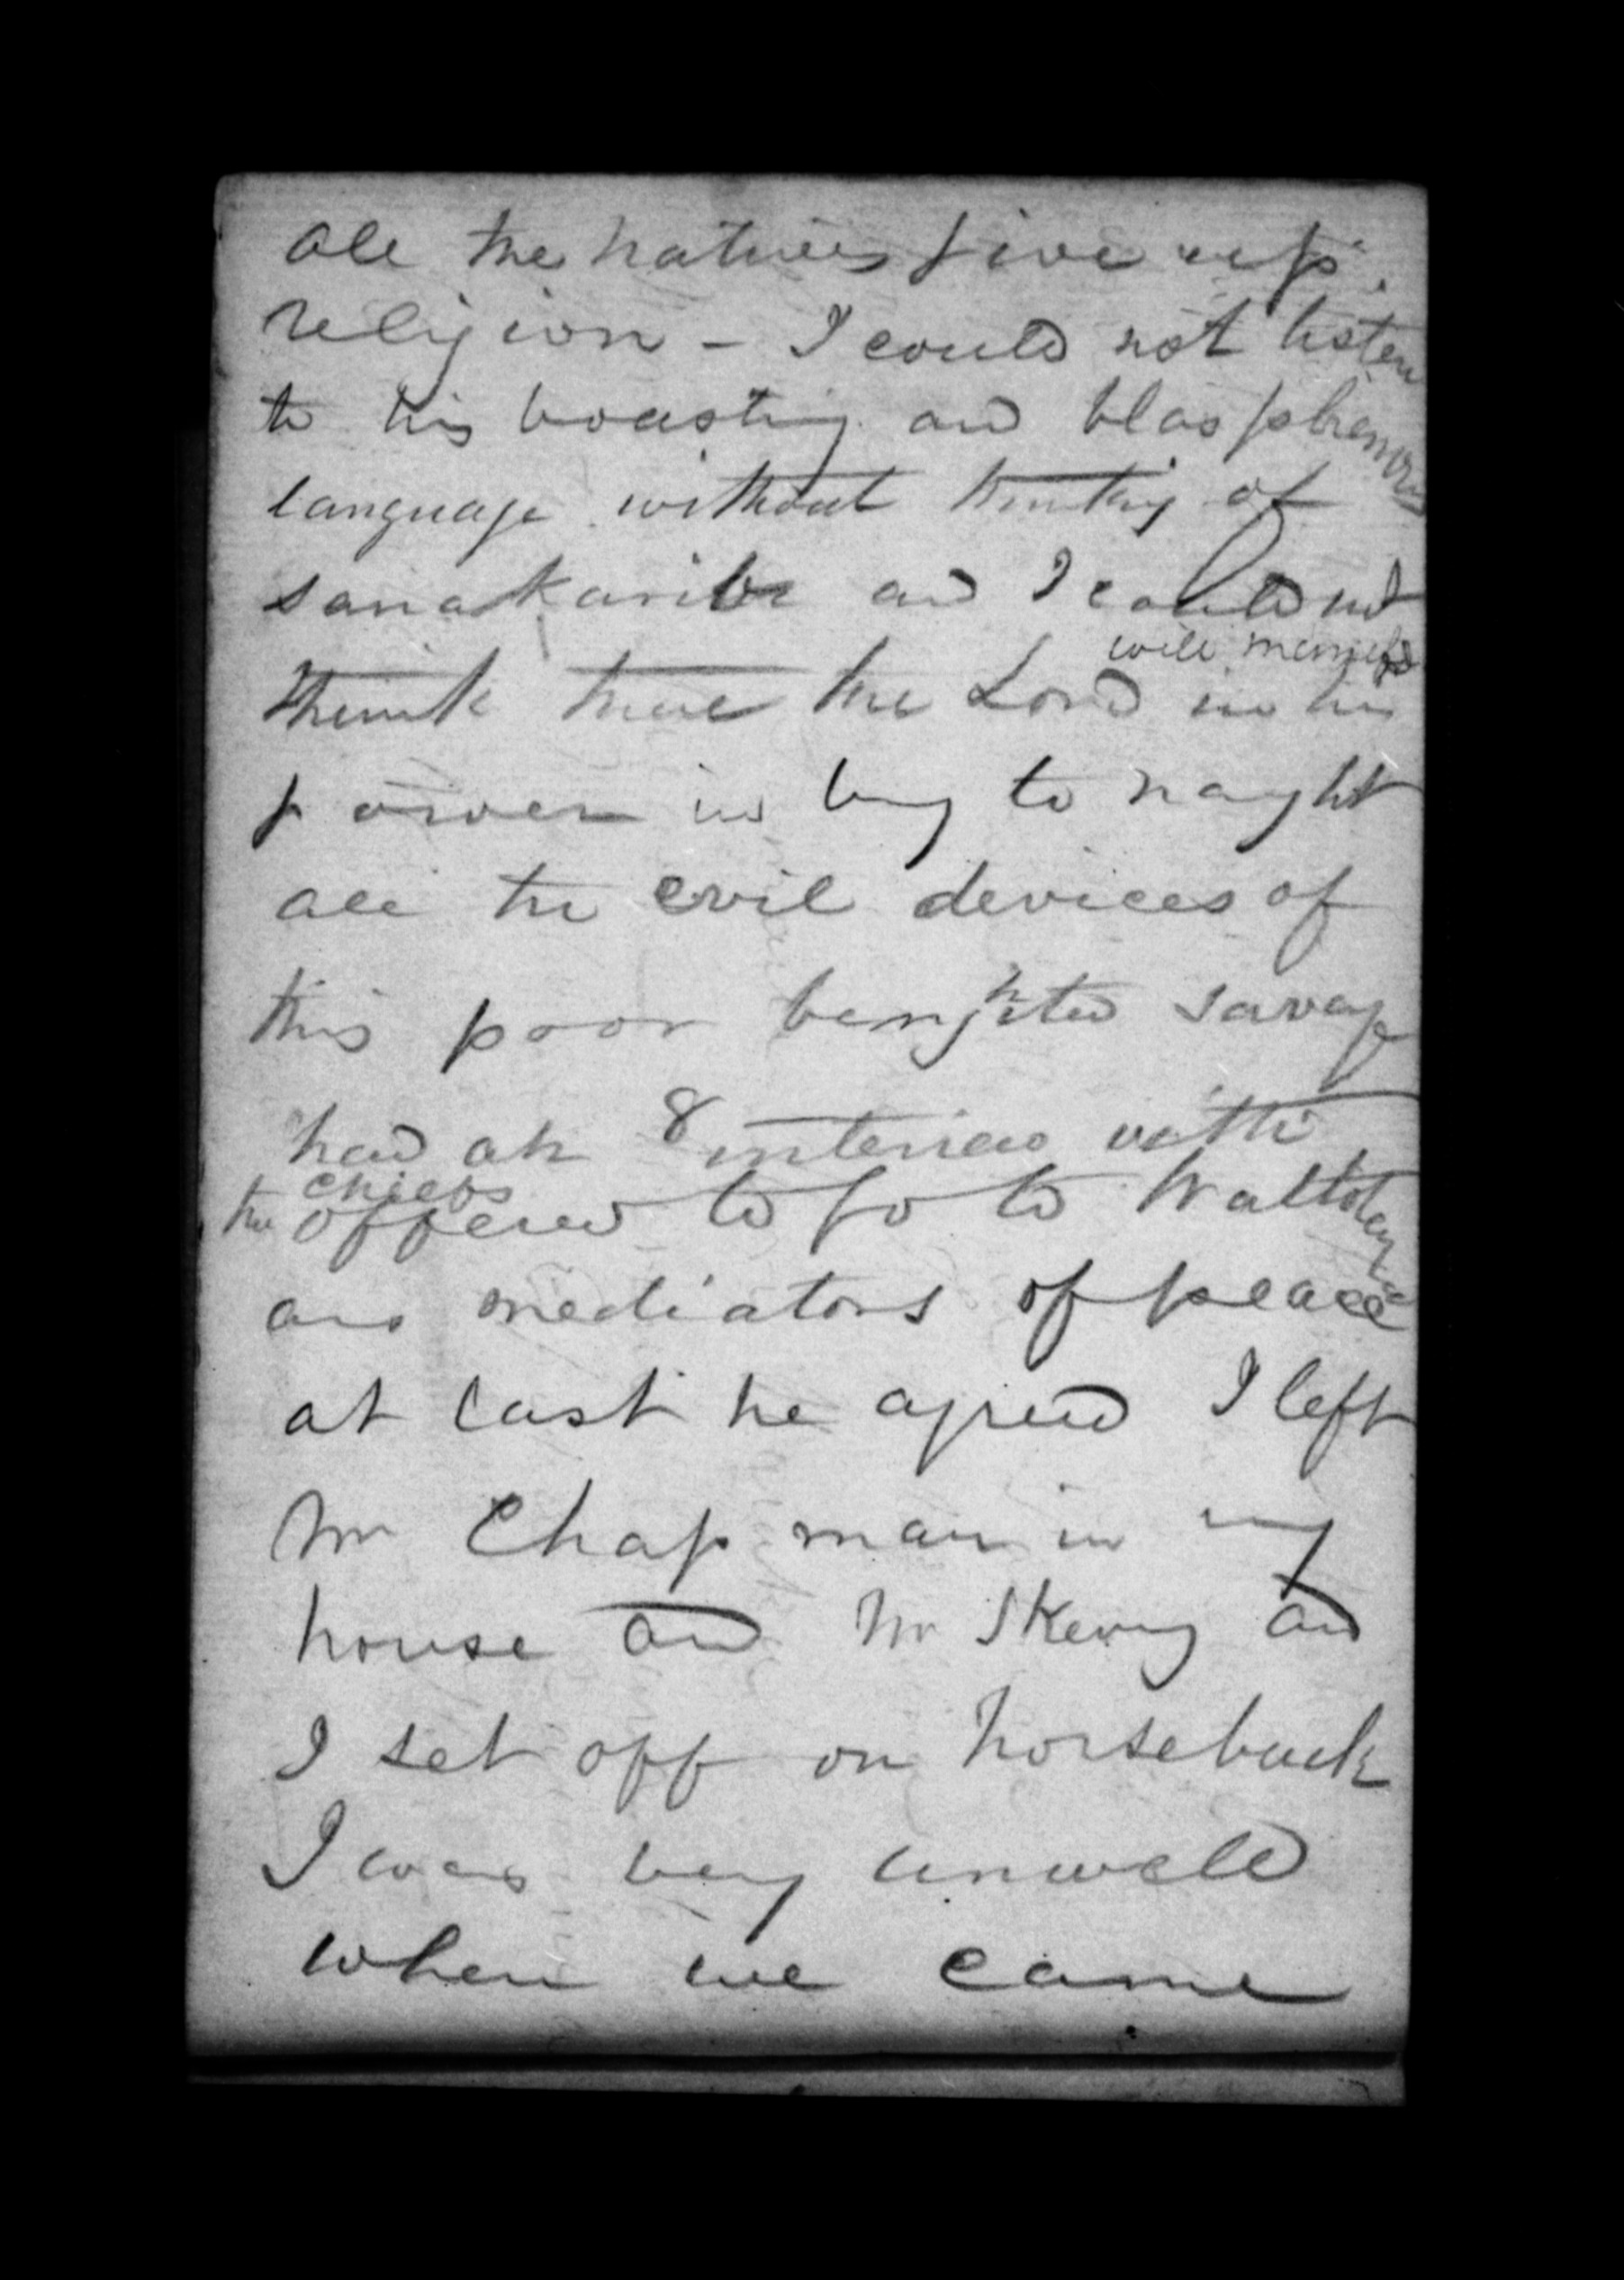 all the natives give up
religion - I could not listen
to his boasting and blasphemous
language without thinking of
and I could not
will manifest
think that the Lord in his
power in bring to naught
all the evil devices of
this poor benighted savage
had an 8 interview with
the chiefs
offered to go to
as mediators of peace
at last he agreed I left
Mr Chapman in my
house and Mr and
I set off on horseback
I was very unwell
when we came